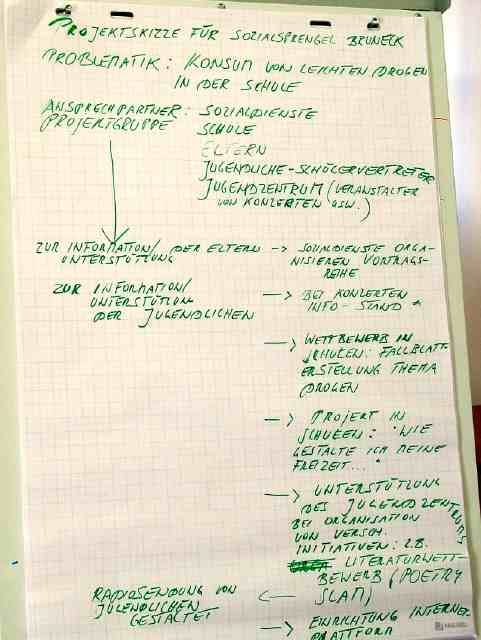 PROJEKTSKIZZE FÜR SOZIALSPRENGEL BRUNECK
PROBLEMATIK: KONSUM VON LEICHTEN DROGEN
IN DER SCHULE
ANSPRECHPARTNER: SOZIALDIENSTE
PROJEKTGRUPPE SCHULE
ELTERN
JUGENDLICHE-SCHÜLERVERTRETER
JUGENDZENTRUM (VERANSTALTER
VON KONZERTEN USW.)
ZUR INFORMATION/ DER ELTERN -> SOZIALDIENSTE ORGA-
UNTERSTÜTZUNG NISIEREN VORTRAGS-
REIHE
ZUR INFORMATION/ -> BEI KONZERTEN
UNTERSTÜTZUN INFO-STAND
DER JUGENDLICHEN
-> WETTBEWERB IN
SCHULEN: FALLBLATT-
ERSTELLUNG THEMA
DROGEN
-> PROJEKT IN
SCHULEN: "WIE
GESTALTE ICH MEINE
FREIZEIT..."
-> UNTERSTÜTZUNG
DES JUGENDZENTRUMS
BEI ORGANISATION
VON VERSCH.
INITIATIVEN: Z.B.
LITERATURWETT-
BEWERB (POETRY
SLAM)
RADIOSENDUNG VON <-
JUGENDLICHEN
GESTALTET
-> EINRICHTUNG INTERNET-
PLATTFORM